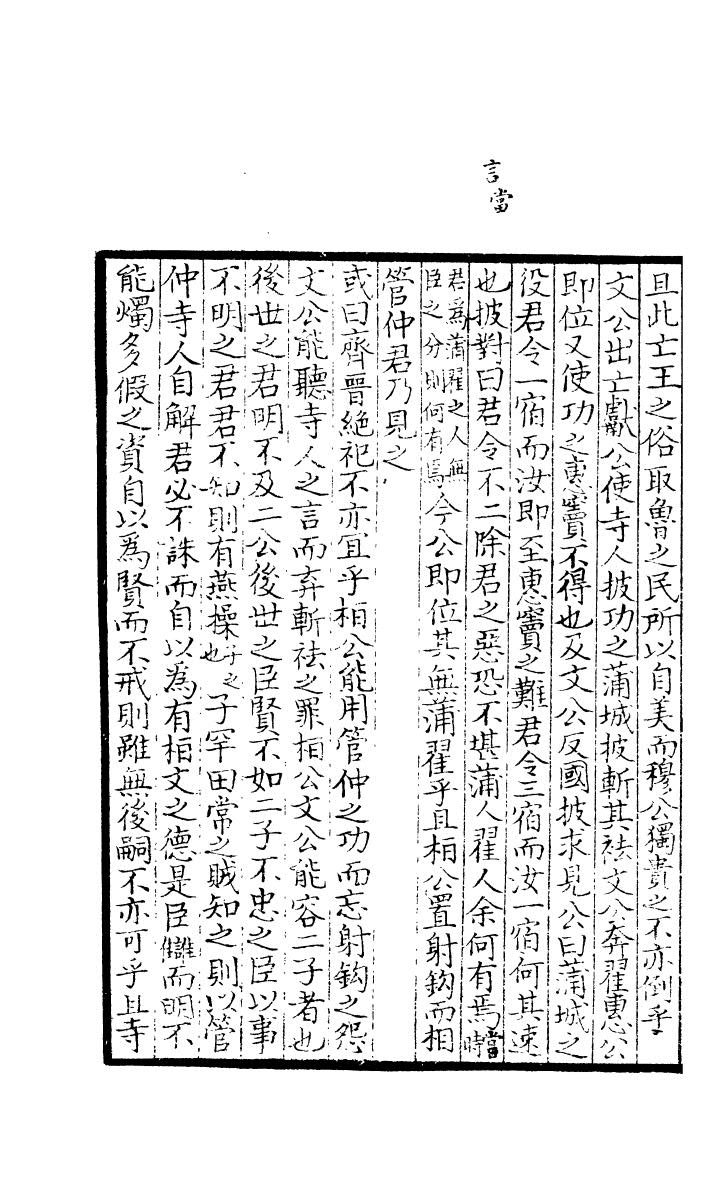 言當
且此亡王之俗取魯之民所以自美而穆公獨貴之不亦倒乎
文公出亡獻公使寺人披攻之蒲城披斬其袪文公奔翟惠公
即位又使攻之惠竇不得也及文公反國披求見公曰蒲城之
役君令一宿而汝即至惠竇之難君令三宿而汝一宿何其速
也披對曰君令不二除君之惡恐不堪蒲人翟人余何有焉當時
君爲蒲翟之人無臣之分則何有焉今公即位其無蒲翟乎且桓公置射鈎而相
管仲君乃見之
或曰齊晉絶祀不亦宜乎桓公能用管仲之功而忘射鈎之怨
文公能聽寺人之言而弃斬袪之罪桓公文公能容二子者也
後世之君明不及二公後世之臣賢不如二子不忠之臣以事
不明之君君不知則有燕操子之也子罕田常之賊知之則以管
仲寺人自解君必不誅而自以爲有桓文之德是臣讎而明不
能燭多假之資自以爲賢而不戒則雖無後嗣不亦可乎且寺